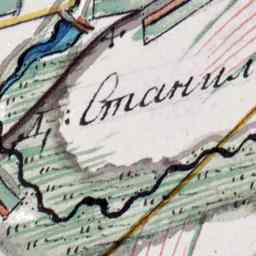 4.
Д: Станил